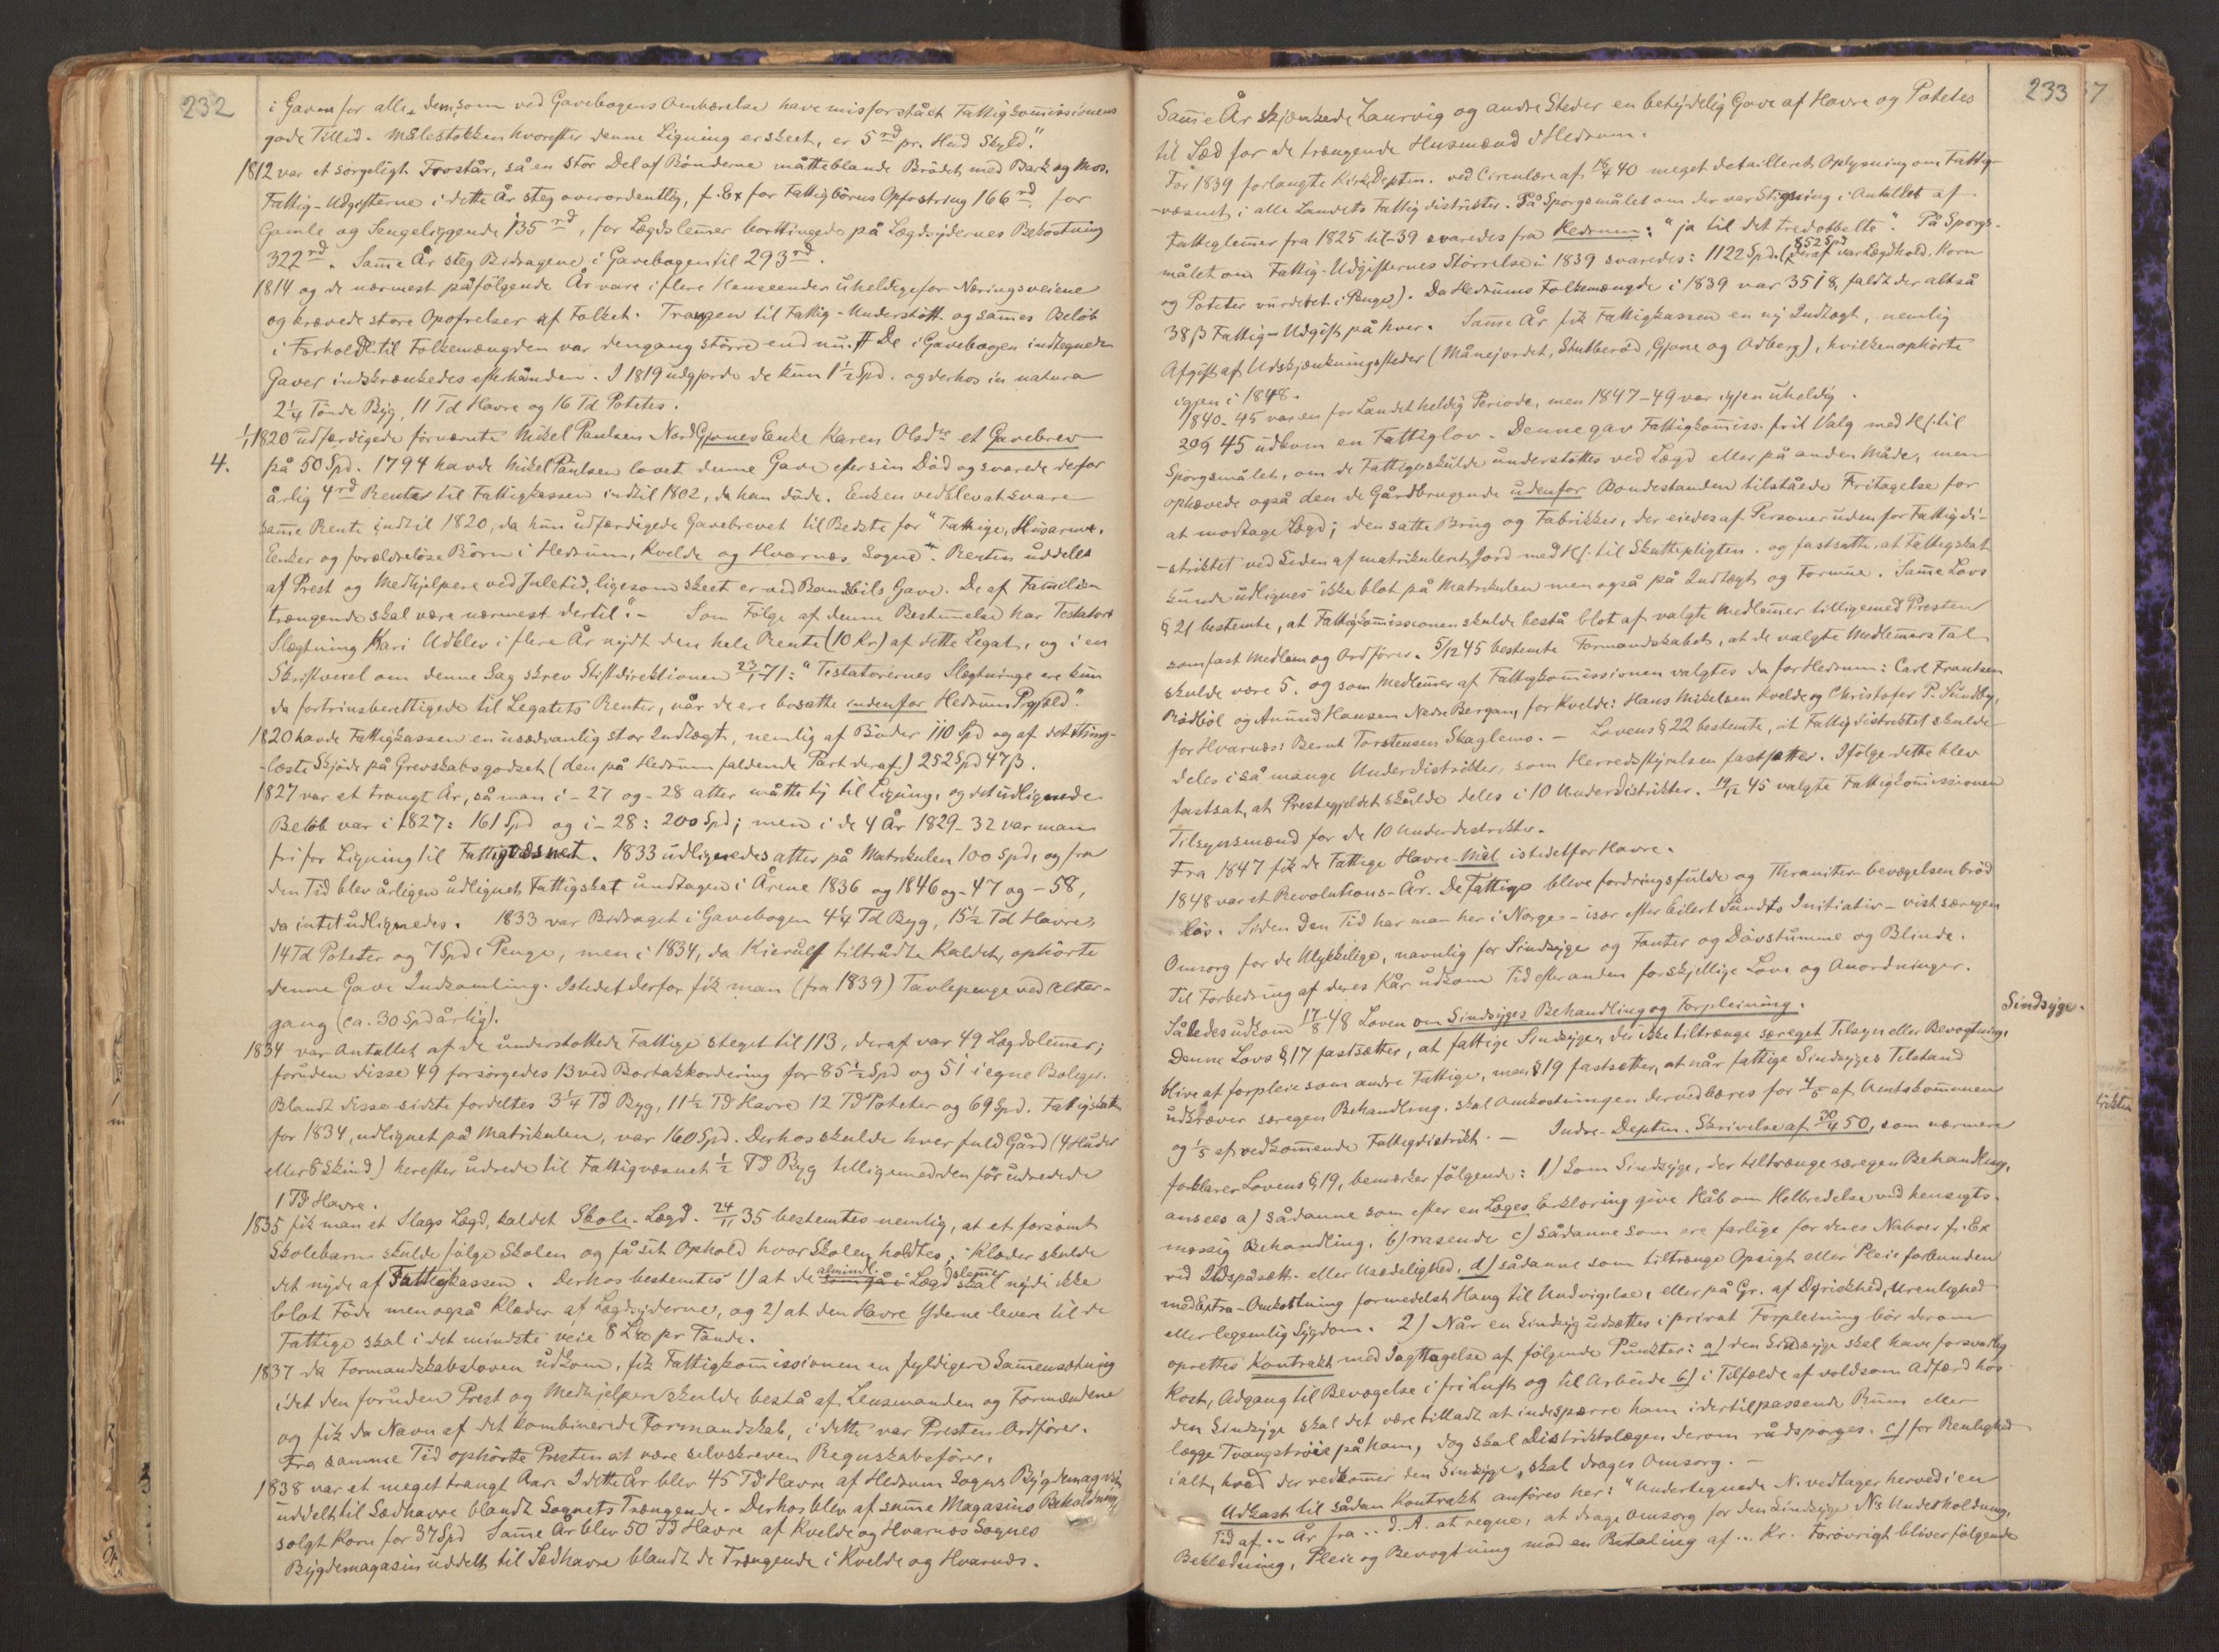 232
i Gaven for alle dem, som ved Gavebogens Ombærelse have misforstået Fattigkommissionens
gode Tillid. Målestokken hvorefter denne Ligning er skeet, er 5 rd pr. Hud Skyld."
1812 var et sørgeligt Frostår, så en stor Del af Bønderne måtte blande Brødet med Bark og Mos.
Fattig-Udgifterne i dette År steg overordentlig, f. Ex for Fattigbørns Opfostring 166 rd, for
Gamle og Sengeliggende 135 rd, for Lægdslemmer borttingede på Lægdsydernes Bekostning
322 rd. Samme År steg Bidragene i Gavebogen til 293 rd.
1814 og de nærmest påfølgende År vare i flere Henseender uheldige for Næringsveiene
og krævede store Opofrelser af Folket. Trangen til Fattig-Understøtt. og sammes Beløb
i Forhold til Folkemængden var dengang større end nu. # De i Gavebogen indtegnede
Gaver indskrænkedes efterhånden. I 1819 udgjorde de kun 1½ Spd. og derhos in natura
2¼ Tønde Byg, 11 Td Havre og 16 Td Potetes.
1/1 1820 udfærdigede førnævnte Mikel Paulsen NordGjønes Enke Karen Olsdtr et Gavebrev
4. på 50 Spd. 1794 havde Mikel Paulsen lovet denne Gave efter sin Død og svarede derfor
årlig 4 rd Renter til Fattigkassen indtil 1802, da han døde. Enken vedblev at svare
samme Rente indtil 1820, da hun udfærdigede Gavebrevet til Bedste for "Fattige, Husarme,
Enker og forældreløse Børn i Hedrum, Kvelde og Hvarnæs Sogne". Renten uddeles
af Prest og Medhjelpere ved Juletid, ligesom skeet er ved Gave. De af Familien
trængende skal være nærmest dertil". – Som Følge af denne Bestemmelse har Testators
Slægtning Kari Udklev i flere År nydt den hele Rente (10 Kr) af dette Legat, og i en
Skriftvexel om denne Sag skrev Stiftdirektionen 23/1 71: "Testatorernes Slægtninge ere kun
da fortrinsberettigede til Legatets Renter, når de ere bosatte indenfor Hedrum Prgjeld".
1820 havde Fattigkassen en usædvanlig stor Indtægt, nemlig af Bøder 110 Spd og af det thing-
-læste Skjøde på Grevskabsgodset (den på Hedrum faldende Part deraf) 252 Spd 47 ß.
1827 var et trangt År, så man i -27 og -28 atter måtte ty til Ligning, og det udlignede
Beløb var i 1827: 161 Spd og i -28: 200 Spd; men i de 4 År 1829-32 var man
fri for Ligning til Fattigvæsnet. 1833 udlignedes atter på Matrikulen 100 Spd, og fra
den Tid blev årligen udlignet Fattigskat undtagen i Årene 1836 og 1846 og -47 og -58,
da intet udlignedes. 1833 var Bidraget i Gavebogen 4¼ Td Byg, 15½ Td Havre,
14 Td Poteter og 7 Spd i Penge, men i 1834, da Kierulf tiltrådte Kaldet, ophørte
denne Gave Indsamling. Istedetderfor fik man (fra 1839) Tavlepenge ved Alter-
gang (ca. 30 Spd årlig).
1834 var Antallet af de understøttede Fattige steget til 113, deraf var 49 Lægdslemmer;
foruden disse 49 forsørgedes 13 ved Bortakkordering for 85½ Spd og 51 i egne Boliger.
Blandt disse sidste fordeltes 3¼ Td Byg, 11½ Td Havre 12 Td Poteter og 69 Spd. Fattigskatten
for 1834, udlignet på Matrikulen, var 160 Spd. Derhos skulde hver fuld Gård (4 Huder
eller 6 Skind) herefter udrede til Fattigvæsnet ½ Td Byg tilligemed den før udredede
1 Td Havre.
1835 fik man et Slags Lægd, kaldet Skole-Lægd. 24/11 35 bestemtes nemlig, at et forsømt
Skolebarn skulde følge Skolen og få sit Ophold hvor Skolen holdtes; Klæder skulde
det nyde af Fattigkassen. Derhos bestemtes 1) at de almindl. Lægdslemmer skal nyde ikke
blot Føde men også Klæder af Lægdsyderne, og 2) at den Havre Yderne levere til de
Fattige skal i det mindste veie 8 L℔ pr Tønde.
1837 da Formandskabsloven udkom, fik Fattigkommissionen en fyldigere Sammensætning
idet den foruden Prest og Medhjelpere skulde bestå af Lensmanden og Formændene
og fik da Navn af det kombinerede Formandskab, i dette var Presten Ordfører.
Fra samme Tid ophørte Presten at være selvskreven Regnskabsfører.
1838 var et meget trangt Aar. I dette År blev 45 Td Havre af Hedrum Sogns Bygdemagasin
uddelt til Sædhavre blandt Sognets Trængende. Derhos blev af samme Magasins Beholdning
solgt Korn for 37 Spd Samme År blev 50 Td Havre af Kvelde og Hvarnæs Sognes
Bygdemagasin uddelt til Sædhavre blandt de Trængende i Kvelde og Hvarnæs.
233
Samme År skjænkede Laurvig og andre Steder en betydelig Gave af Havre og Potetes
til Sæd for de trængende Husmænd i Hedrum.
For 1839 forlangte Kirk. Deptm. ved Circulære af 16/4 40 meget detailleret Oplysning om Fattig-
-væsnet i alle Landets Fattigdistrikter. På Spørgsmålet om der var Stigning i Antallet af
Fattiglemmer fra 1825 til -39 svaredes fra Hedrum: "ja til det tredobbelte". På Spørgs-
målet om Fattig-Udgifternes Størrelse i 1839 svaredes: 1122 Spd. (deraf 852 Spd var Lægdhold, Korn
og Poteter vurderet i Penge). Da Hedrums Folkemængde i 1839 var 3518, faldt der altså
38 ß Fattig-Udgift på hver. Samme År fik Fattigkassen en ny Indtægt, nemlig
Afgift af Udskjænkningssteder (Månejordet, Stutberød, Gjone og Odberg), hvilken ophørte
igjen i 1848.
1840-45 var en for Landet heldig Periode, men 1847-49 var igjen uheldig.
20/9 45 udkom en Fattiglov. Denne gav Fattigkommiss. frit Valg med Hs. til
Spørgsmålet, om de Fattige skulde understøttes ved Lægd eller på anden Måde, men
ophævede også den de Gårdbrugende udenfor Bondestanden tilståede Fritagelse for
at modtage Lægd; den satte Brug og Fabrikker, der eiedes af Personer udenfor Fattigdi-
-striktet ved Siden af matrikuleret Jord med Hs. til Skattepligten, og fastsatte, at Fattigskat
kunde udlignes ikke blot på Matrikulen men også på Indtægt og Formue. Samme Lovs
§ 21 bestemte, at Fattigkommissionen skulde bestå blot af valgte Medlemmer tilligemed Presten
som fast Medlem og Ordfører. 5/12 45 bestemte Formandskabet, at de valgte Medlemmers Tal
skulde være 5, og som Medlemmer af Fattigkommissionen valgtes da for Hedrum: Carl Frantsen
Rødbøl og Amund Hansen Nedre Bergan, for Kvelde: Hans Mikelsen Kvelde og Christofer P. Sundby,
for Hvarnæs: Bernt Torstensen Skaglemo. – Lovens § 22 bestemte, at Fattigdistriktet skulde
deles i så mange Underdistrikter, som Herredsstyrelsen fastsætter. Ifølge dette blev
fastsat, at Prestegjeldet skulde deles i 10 Underdistrikter. 19/12 45 valgte Fattigkommissionen
Tilsynsmænd for de 10 Underdistrikter.
Fra 1847 fik de Fattige Havre-Mel istedetfor Havre.
1848 var et Revolutions-År. De Fattige bleve fordringsfulde og Thraniter-bevægelsen brød
løs. Siden den Tid har man her i Norge – især efter Eilert Sundts Initiativ – vist særegen
Omsorg for de Ulykkelige, navnlig for Sindsyge og Fanter og Døvstumme og Blinde.
Til Forbedring af deres Kår udkom Tid efter anden forskjellige Love og Anordninger.
Sindsyge.
Således udkom 17/8 48 Loven om Sindsyges Behandling og Forpleining.
Denne Lovs § 17 fastsætter, at fattige Sindsyge, der ikke tiltrænge særeget Tilsyn eller Bevogtning,
blive at forpleie som andre Fattige, men § 19 fastsætter, at når fattige Sindsyges Tilstand
udkræver særegen Behandling, skal Omkostningen derved bæres for 4/5 af Amtskommunen
og 1/5 af vedkommende Fattigdistrikt. – Indre-Deptm. Skrivelse af 30/4 50, som nærmere
forklarer Lovens § 19, bemærker følgende: 1) Som Sindsyge, der tiltrænge særegen Behandling,
ansees a) sådanne som efter en Læges Erklæring give Håb om Helbredelse ved hensigts-
mæssig Behandling, b) rasende c) sådanne som ere farlige for deres Naboer f. Ex
ved Ildspåsætt. eller Usædelighed, d) sådanne som tiltrænge Opsigt eller Pleie forbunden
med Extra-Omkostning formedelst Hang til Undvigelse, eller på Gr. af Dyriskhed, Urenlighed
eller legemlig Sygdom. 2) Når en Sindsyg udsættes i privat Forpleining bør derom
oprettes Kontrakt med Iagttagelse af følgende Punkter: a) den Sindsyge skal have forsvarlig
Kost, Adgang til Bevægelse i fri Luft og til Arbeide b) i Tilfælde af voldsom Adfærd hos
den Sindsyge skal det være tilladt at indespærre ham i dertil passende Rum eller
lægge Tvangstrøie på ham, dog skal Distriktslægen derom rådspørges. c) for Renlighed
i alt, hvad der vedkommer den Sindsyge, skal drages Omsorg. –
Udkast til sådan Kontrakt anføres her: "Undertegnede N. vedtager herved i en
Tid af .. År fra .. d. A. at regne, at drage Omsorg for den Sindsyge N's Underholdning,
Beklædning, Pleie og Bevogtning mod en Betaling af .. Kr. Forøvrigt bliver følgende